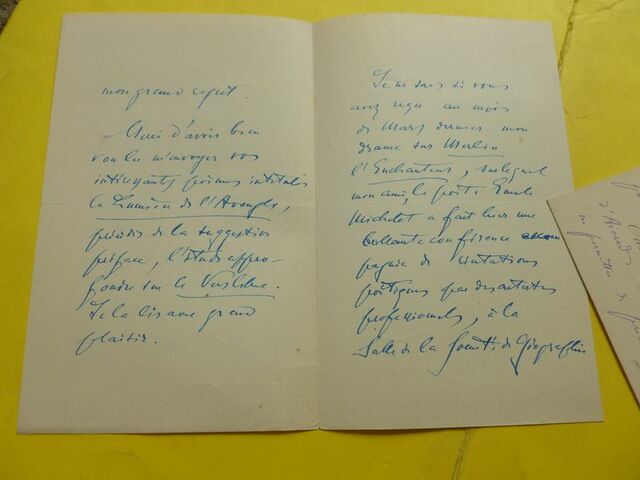 mon grand regret.
Merci d'avoir bien
voulu m'envoyer vos
intéressants poèmes intitulés
la Lumière de l'Aveugle,
précédés de la suggestive
préface, l'Etude appro-
fondie sur le Vers libre.
Je la lis avec grand
plaisir.
Je ne sais si vous
avez reçu au mois
de Mars dernier mon
drame sur Merlin
l'Enchanteur, sur lequel
mon ami, le poète Emile
Michelet a fait hier une
brillante conférence accom
pagnée de récitations
poétiques par des artistes
professionnels, à la
Salle de la Société de Géographie